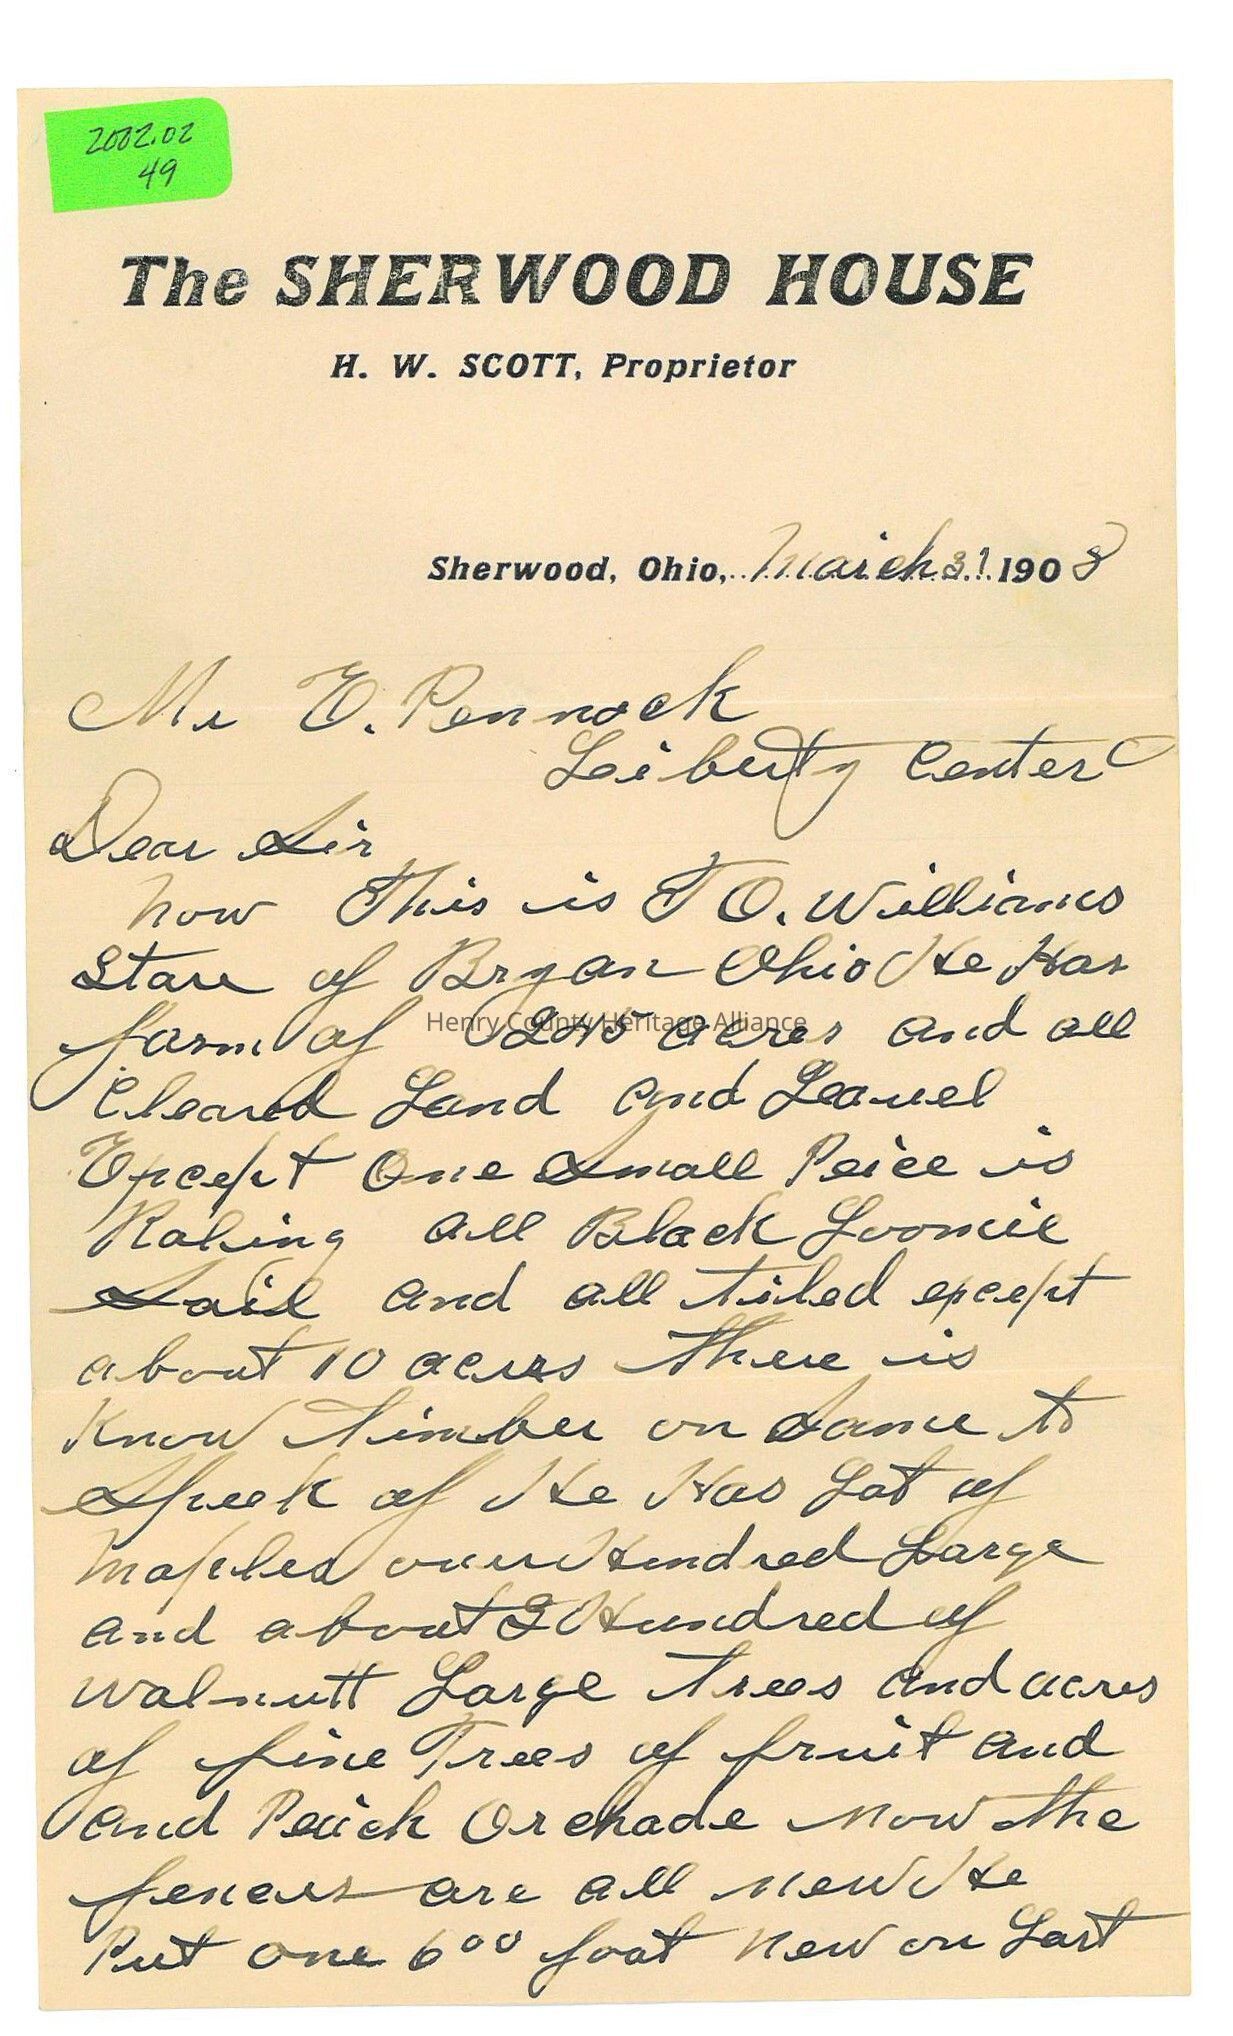 2002.02
49
The SHERWOOD HOUSE
H. W. SCOTT, Proprietor
Sherwood, Ohio, March 31 1908
Mr E. Pennock
Leiberty Center O
Dear Sir
now This is T O. Williams
Stare of Bryan Ohio He Has
farm of acres and all
Henry County Heritage Alliance
Cleared Land and Leavel
Except One Small Peice is
Roling all Black Loomie
Soil and all tiled except
about 10 acres there is
Know timber on Same to
Speek of He Has Lot of
maples over Hundred Large
and about 2 Hundred of
walnutt Large trees and acres
of fine Trees of fruit and
and Peach Orchade now the
fences are all new He
Put one 600 foot new on Last